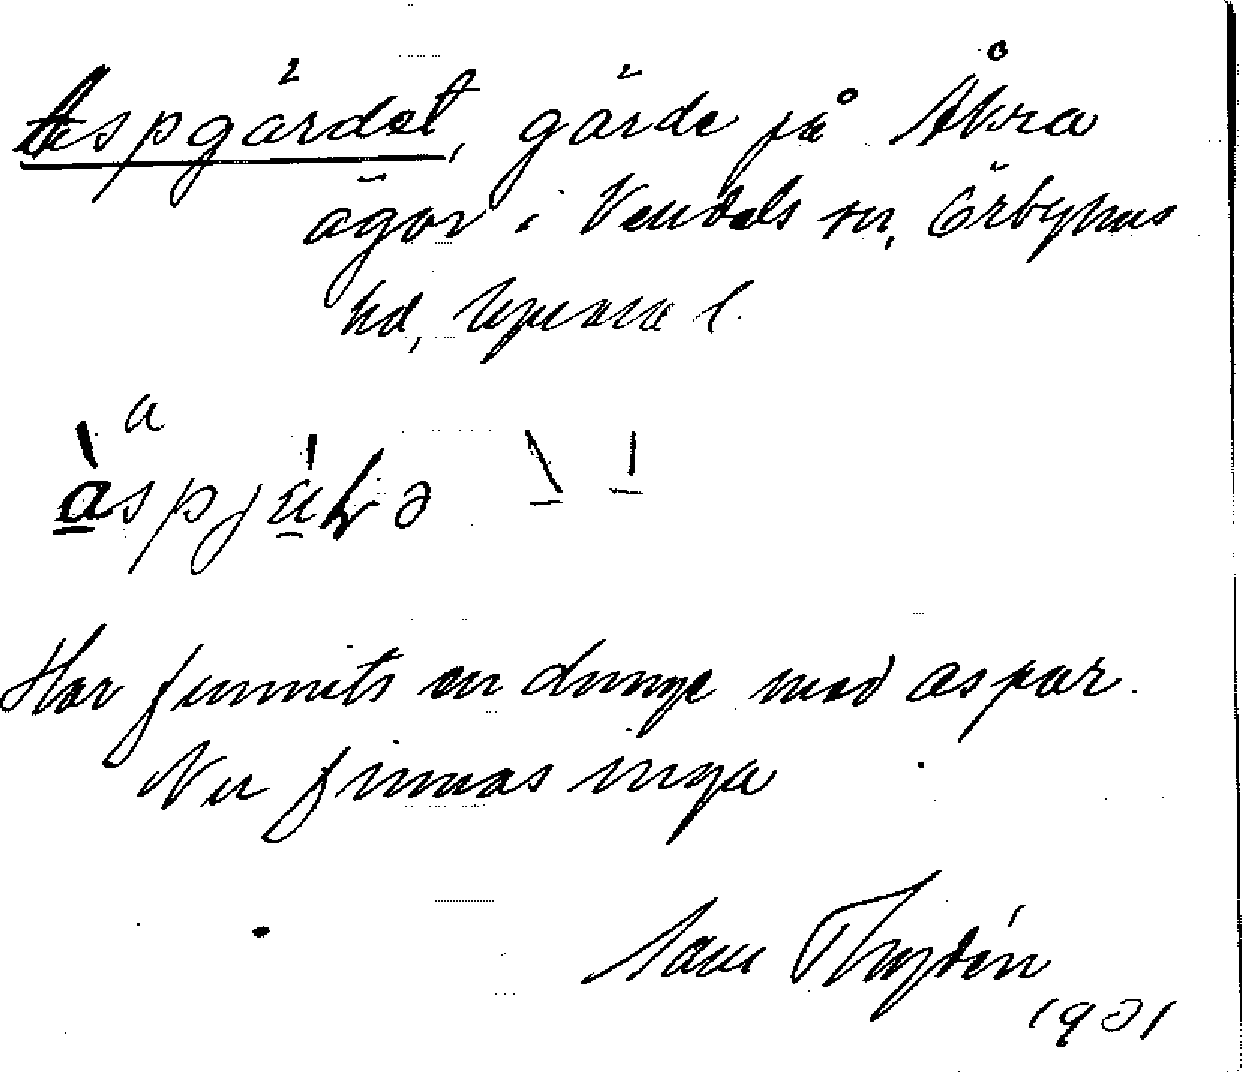 Aspgärdet, gärde på Åkra
ägor i Vendels sn, Örbyhus
hd, Uppsala l.
a
Har funnits en dunge med aspar.
Nu finnas inga
1931